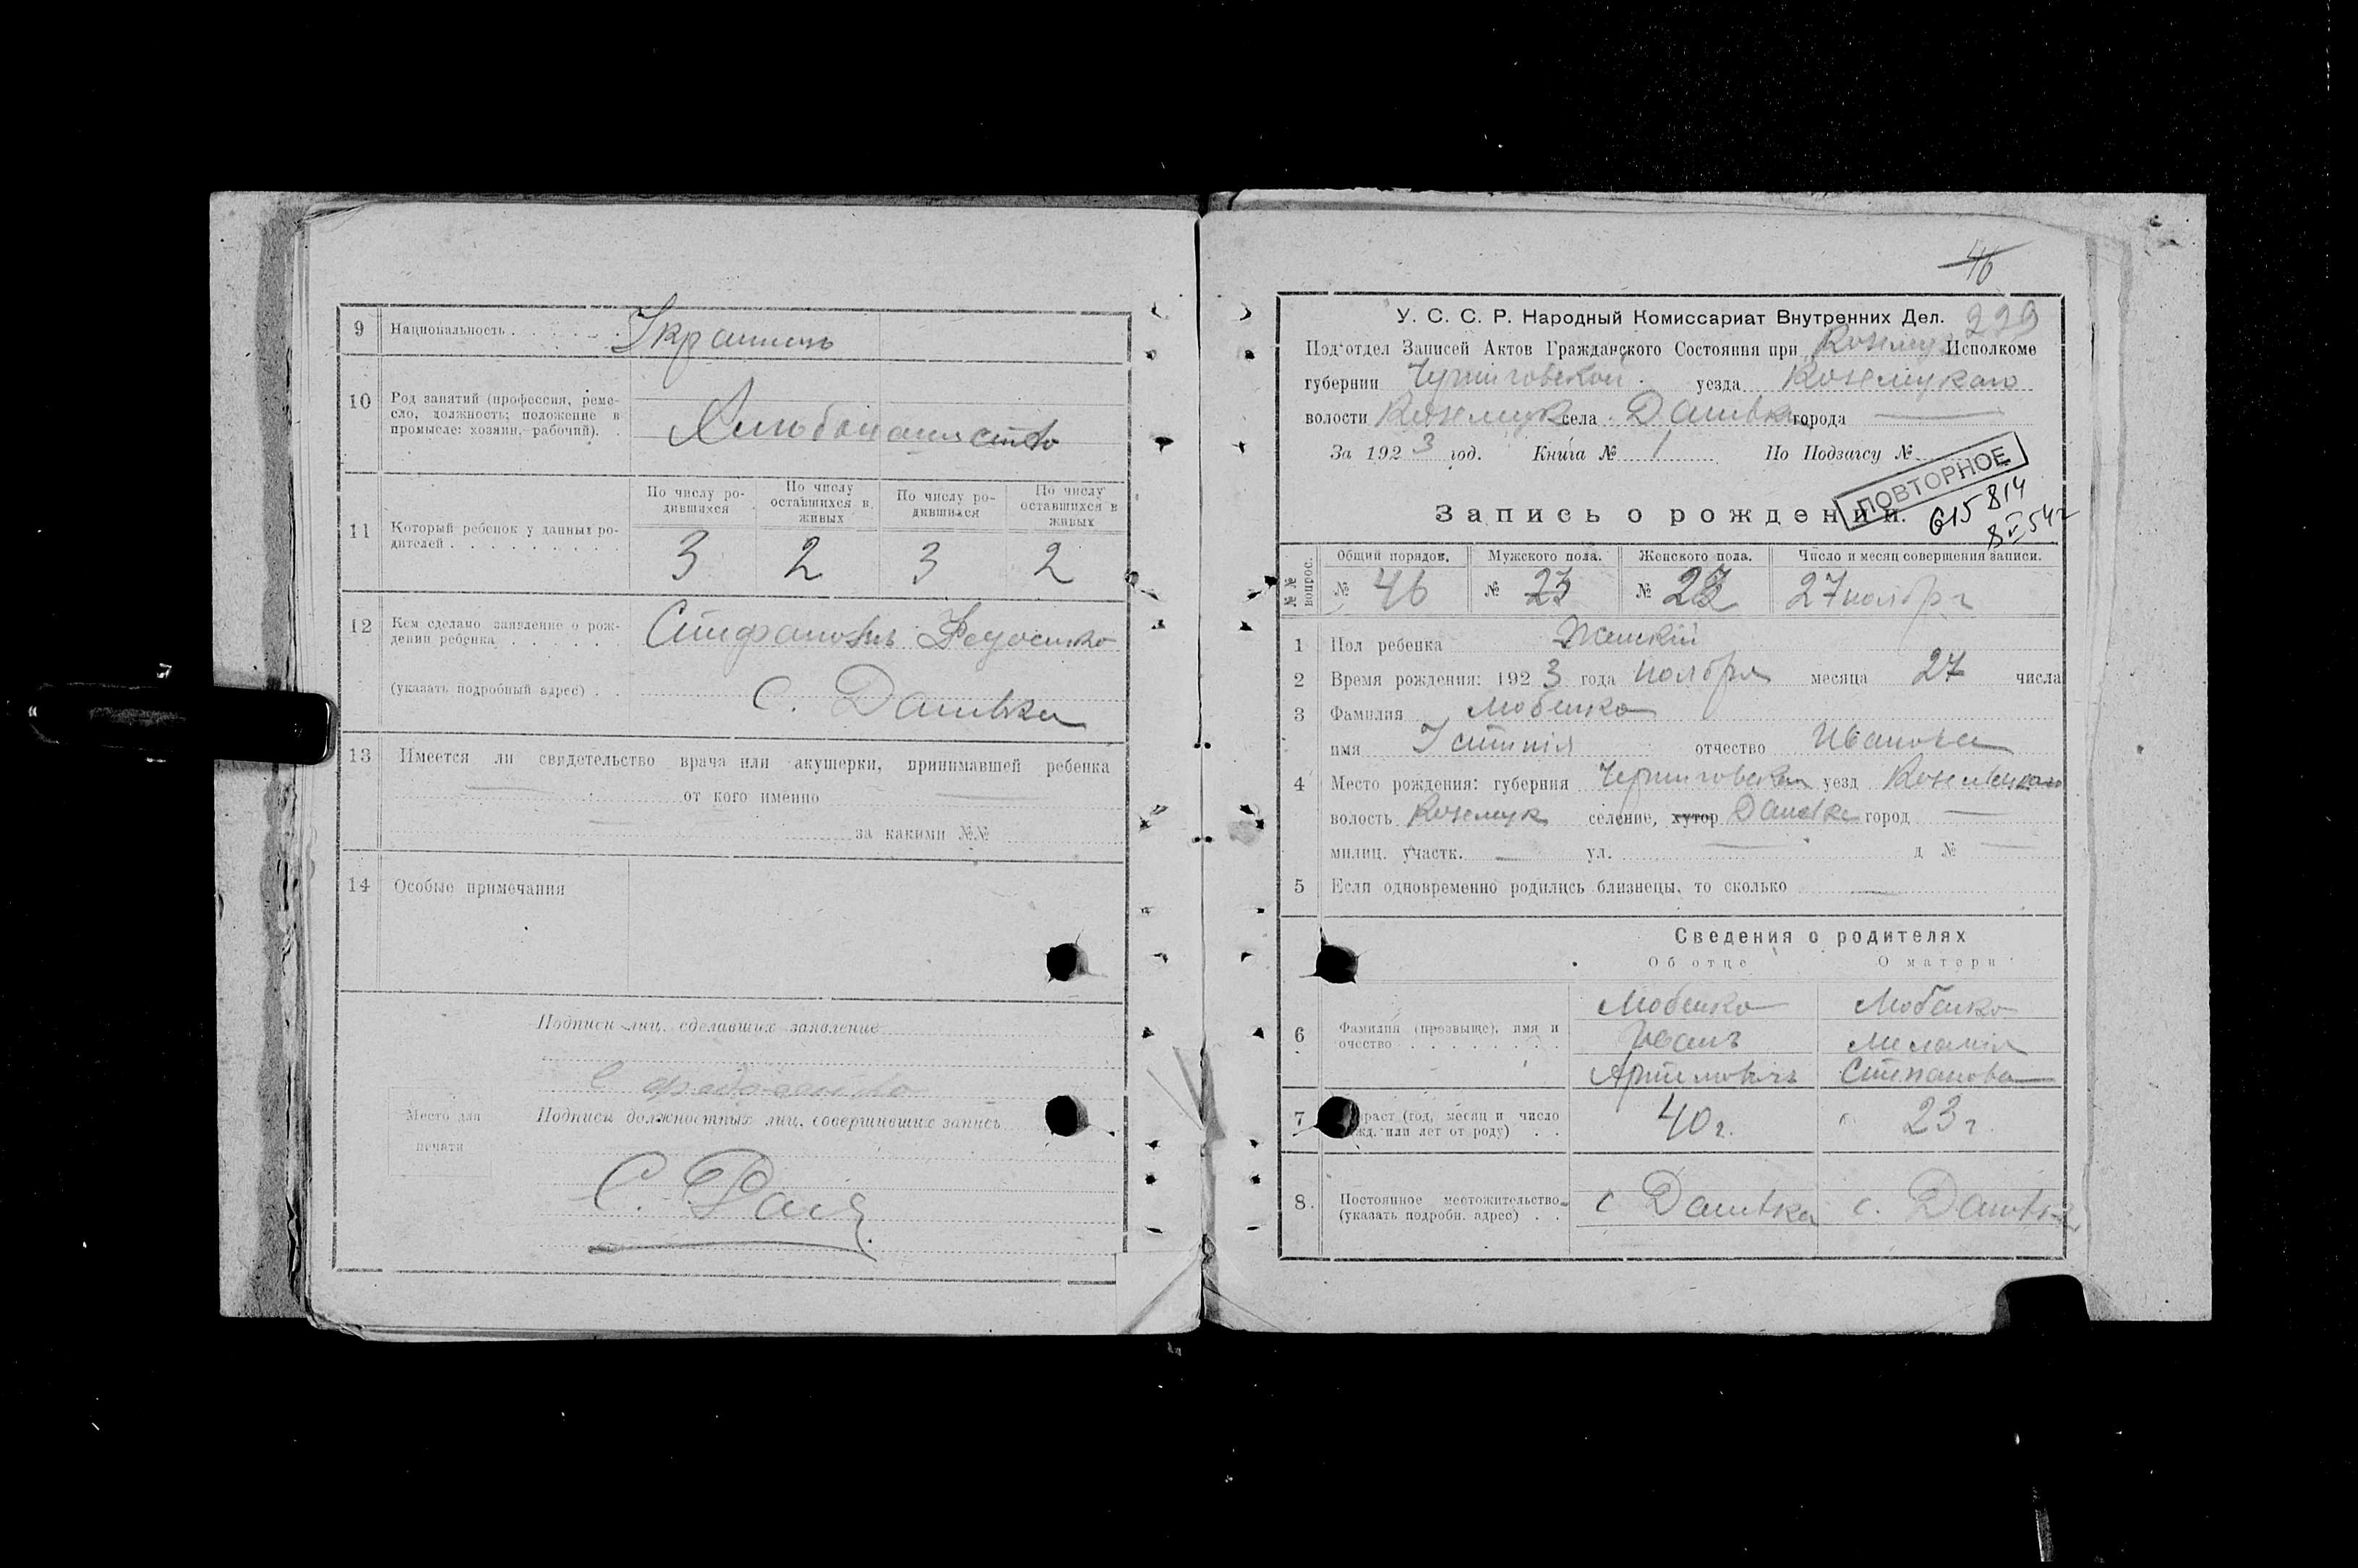 9 Национальность . . . . . . Украинець
10 Род занятий (профессия, реме-
сло, должность; положение в
промысле: хозяин, рабочий). . Хлебопашество
По числу ро-
дившихся
По числу
оставшихся в
живых
По числу ро-
дившихся
По числу
оставшихся в
живых
11 Который ребенок у данных ро-
дителей . . . . . . . . . 3 2 3 2
12 Кем сделано заявление о рож-
дении ребенка . . . . . Федосенко
(указать подробный адрес) . . С. Даневка
13 Имеется ли свидетельство врача или акушерки, принимавшей ребенка
от кого именно
за какими №№
14 Особые примечания
Подписи лиц, сделавших заявление
Место для
печати
Подписи должностных лиц, совершивших запись
С.
46
У. С. С. Р. Народный Комиссариат Внутренних Дел. 229
Под'отдел Записей Актов Гражданского Состояния при Козелец Исполкоме
губернии Черниговской уезда Козелецкаго
волости Козелецк села Даневка города —
За 1923 год. Книга № 1 По Подзагсу №
ПОВТОРНОЕ
615814
8 V 54 г
Запись о рождении.
№№ вопрос.
Общий порядов.
Мужского пола.
Женского пола.
Число и месяц совершения записи.
№ 46 № 23 № 23 27 ноября
1 Пол ребенка Женский
2 Время рождения: 1923 года ноября месяца 27 числа
3 Фамилия Любенко
имя Устинія отчество Иванова
4 Место рождения: губерния Черниговская уезд Козелецкаго
волость Козелецк селение, хутор Даневка город —
милиц. участк. — ул. — д № —
5 Если одновременно родились близнецы, то сколько —
Сведения о родителях
Об отце О матери
6 Фамилия (прозвыще), имя и
очество . . . . . . . . .
Любенко Любенко
Иванъ Меланія
Артемовичъ Степанова
7 раст (год, месяц и число
жд. или лет от роду) . . 40 г. 23 г.
8. Постоянное местожительство
(указать подробн. адрес) . . с Даневка с. Даневка